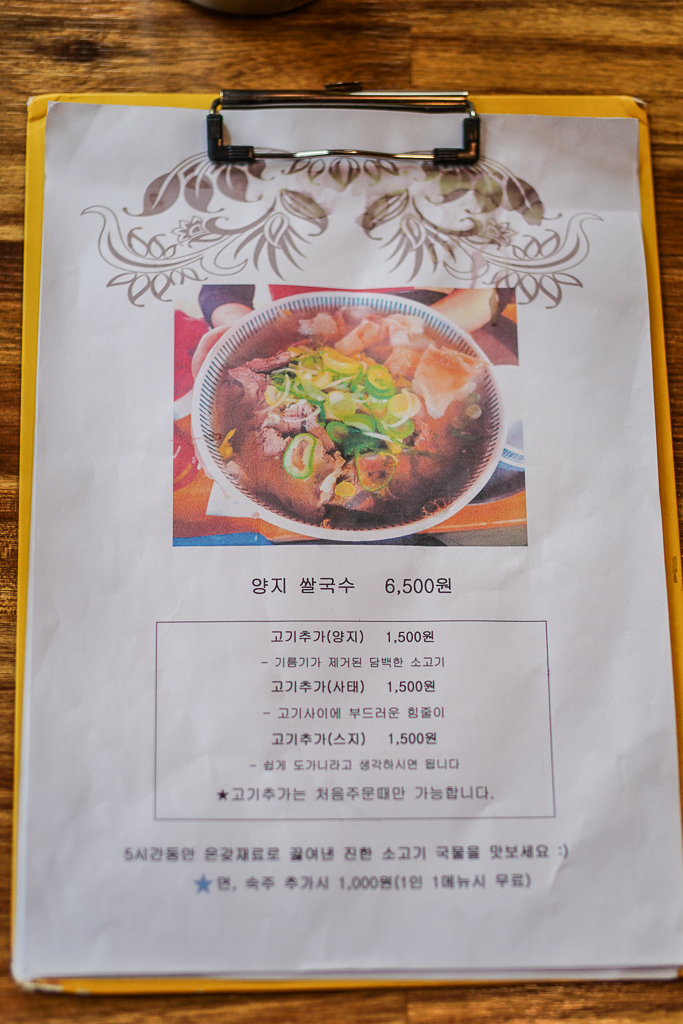 양지 쌀국수 6,500원
고기추가(양지) 1,500원
- 기름기가 제거된 담백한 소고기
고기추가(사태) 1,500원
- 고기사이에 부드러운 힘줄이
고기추가(스지) 1,500원
- 쉽게 도가니라고 생각하시면 됩니다
★고기추가는 처음주문때만 가능합니다.
5시간동안 온갖재료로 끓여낸 진한 소고기 국물을 맛보세요 :)
★면, 숙주 추가시 1,000원(1인 1메뉴시 무료)